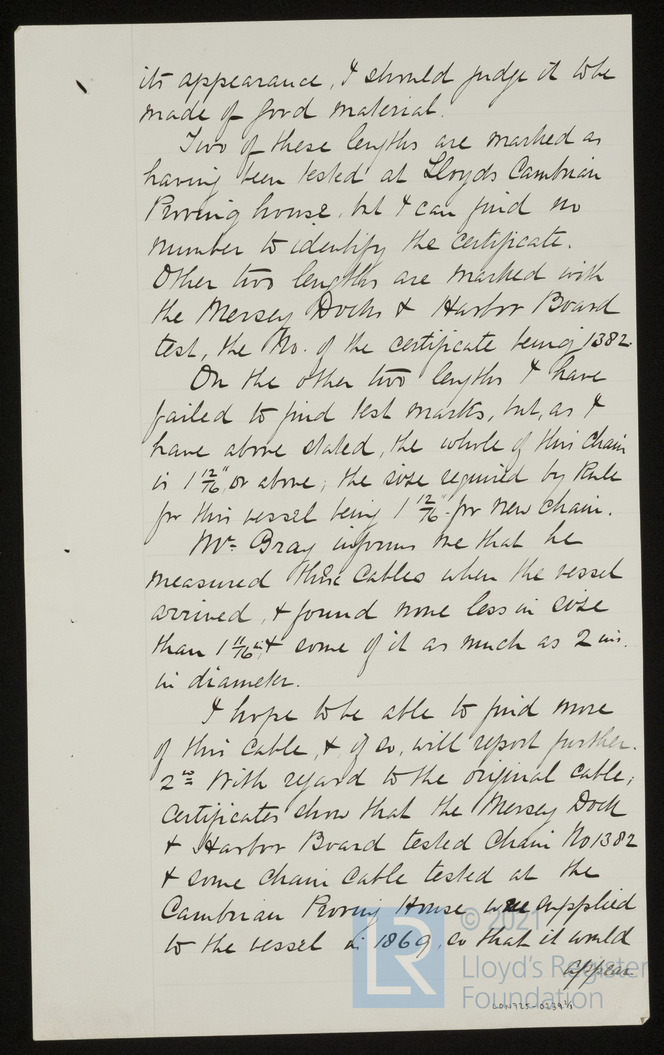 its appearance, I should judge it to be
made of good material.
Two of these lengths are marked as
having been tested at Lloyds Cambrian
Proving house, but I can find no
number to identify the certificate.
Other two lengths are marked with
the Mersey Docks & Harbor Board
test, the No. of the certificate being 1382.
On the other two lengths I have
failed to find test marks, but, as I
have above stated, the whole of this chain
is 1 12/16" or above; the size required by Rule
for this vessel being 1 12/16" for new chain.
Mr. Bray informs me that he
measured these cables when the vessel
arrived, & found none less in size
than 1 11/16 in, & some of it as much as 2 ins.
in diameter.
I hope to be able to find more
of this cable, & if so, will report further.
2nd With regard to the original cable;
Certificates show that the Mersey Dock
& Harbor Board tested Chain No 1382
& some chain cable tested at the
Cambrian Proving House were supplied
to the vessel in 1869, so that it would
appear
© 2021
LR
Lloyd's Register
Foundation